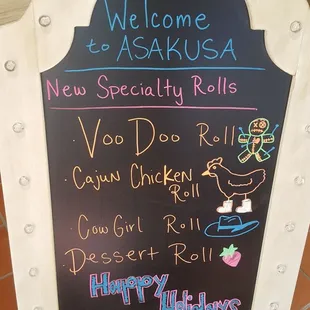 Welcome
to ASAKUSA
New Specialty Rolls
· Voo Doo Roll
· Cajun Chicken
Roll
· Cow Girl Roll
Dessert Roll
Happy
Holidays